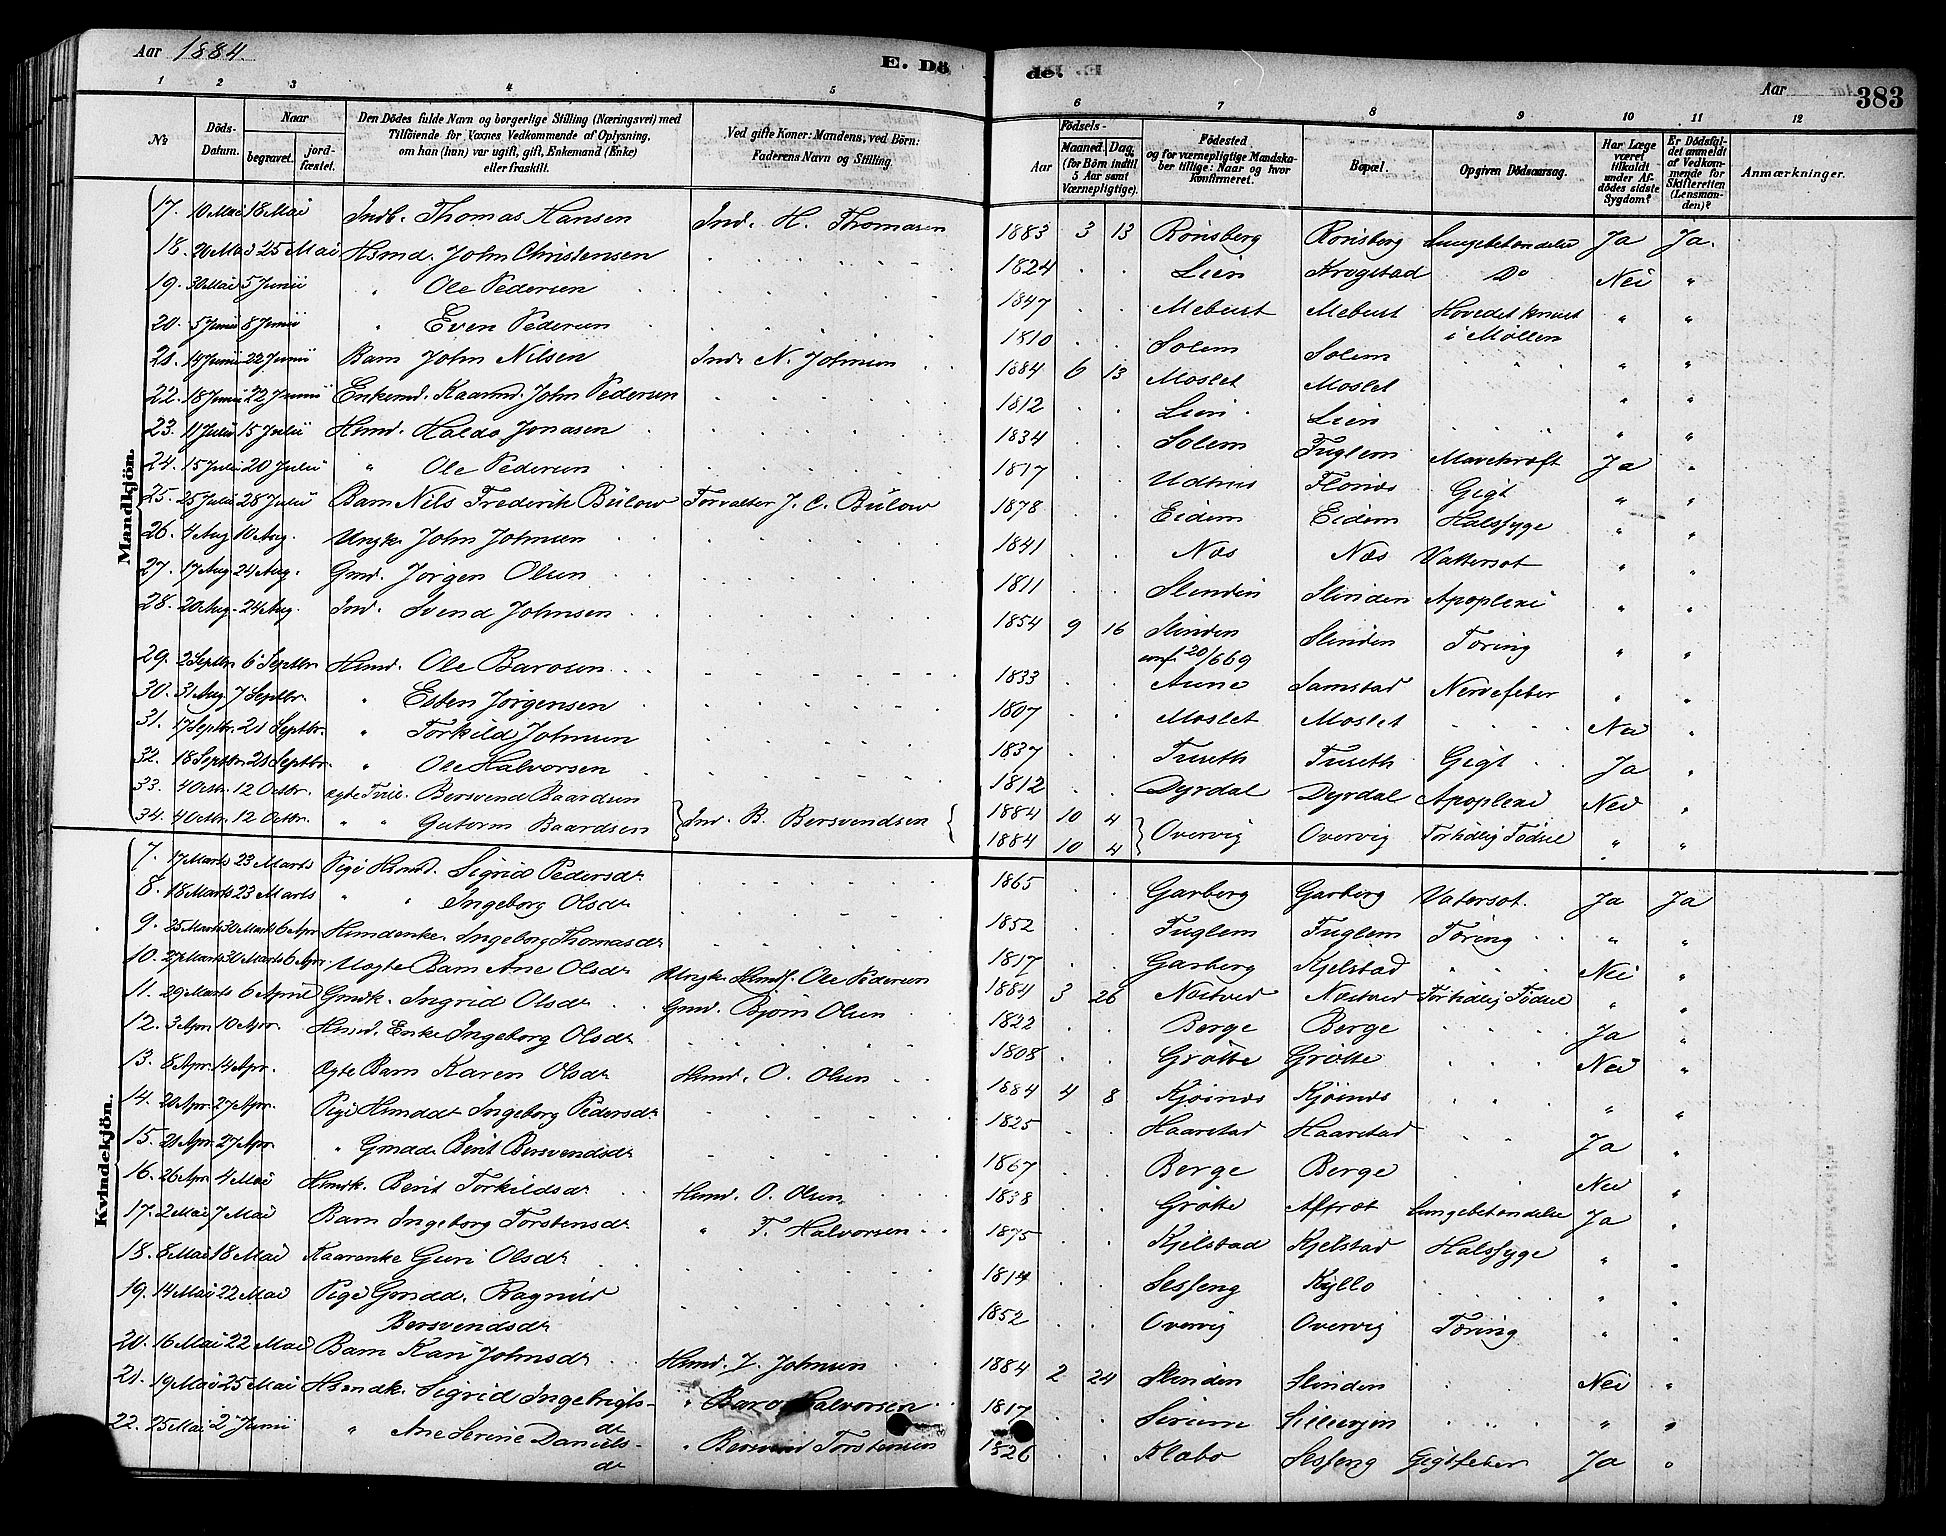 Aar 1884. E. Dö de. Aar 383
1 2 3 4 5 6 7 8 9 10 11 12
№ Döds-Datum. Naar begravet. jordfæstet. Den Dödes fulde Navn og borgerlige Stilling (Næringsvei) med Tilföiende for Voxnes Vedkommende af Oplysning, om han (hun) var ugift, gift, Enkemand (Enke) eller fraskilt. Ved gifte Koner: Mandens, ved Börn: Faderens Navn og Stilling. Födsels- Aar Maaned. Dag. (for Börn indtil 5 Aar samt Værnepligtige). Födested og for værnepligtige Mandskaber tillige: Naar og hvor konfirmeret. Bopæl. Opgiven Dödsaarsag. Har Læge været tilkaldt under Afdödes sidste Sygdom? Er Dödsfaldet anmeldt af Vedkommende for Skifteretten (Lensmanden)? Anmærkninger.
Mandkjön.
17. 10 Mai 18 Mai Indb. Thomas Hansen Ind. H. Thomasen 1883 3 13 Rönsberg Rönsberg Lungebetændelse Ja Ja.
18. 20 Mai 25 Mai Hsmd. John Christensen 1824 Lien Krogstad Do Nei "
19. 30 Mai 5 Junii " Ole Pedersen 1847 Mebust Mebust Hovedet knust i Möllen " "
20. 5 Junii 8 Junii " Even Pedersen 1810 Solem Solem " "
21. 14 Junii 22 Junii Barn John Nilsen Ind. N. Johnsen 1884 6 13 Moslet Moslet " "
22. 18 Junii 22 Junii Enkemd. Kaarmd. John Pedersen 1812 Lien Lien " "
23. 11 Julii 15 Julii Hsmd. Haldo Jonasen 1834 Solem Fuglem Mavekræft Ja "
24. 15 Julii 20 Julii " Ole Pedersen 1817 Udtnes Flönæs Gigt " "
25. 25 Julii 28 Julii Barn Nils Frederik Bülow Forvalter J. C. Bülow 1878 Eidem Eidem Halssyge " "
26. 4 Aug 10 Aug. Ungk. John Johnsen 1841 Næs Næs Vattersot " "
27. 17 Aug. 24 Aug. Gmd. Jörgen Olsen 1811 Slinden Slinden Apoplexi " "
28. 20 Aug. 24 Aug. Ind. Svend Johnsen 1854 9 16 Slinden conf. 20/6 69 Slinden Tæring " "
29. 2 Septbr. 6 Septbr. Hsmd. Ole Barosen 1833 Aune Samstad Nervefeber " "
30. 31 Aug. 7 Septbr. " Esten Jörgensen 1807 Moslet Moslet Nei "
31. 17 Septbr. 21 Septbr. " Torkild Johnsen 1837 Tuseth Tuseth Gigt Ja "
32. 18 Septbr. 21 Septbr. " Ole Halvorsen 1812 Dyrdal Dyrdal Apoplexi Nei "
33. 4 Octbr. 12 Octbr. Ægte Tvil. Bersvend Baardsen Ind. B. Bersvendsen 1884 10 4 Overvig Overvig Fortidlig Födsel " "
34. 4 Octbr. 12 Octbr. " " Gutorm Baardsen 1884 10 4
Kvindekjön.
7. 17 Marts 23 Marts Pige Hsmd. Sigrid Pedersdt. 1865 Garberg Garberg Vatersot. Ja Ja
8. 18 Marts 23 Marts " " Ingeborg Olsdt. 1852 Fuglem Fuglem Tæring " "
9. 25 Marts 30 Marts 6 Apr. Hsmdenke. Ingeborg Thomasdt. 1817 Garberg Kjelstad " " Nei "
10. 27 Marts 30 Marts 6 Apr. Uægte Barn Ane Olsdt. Ungk. Hsmdf. Ole Pedersen 1884 3 26 Næstved Næstved Fortidlig Födsel " "
11. 29 Marts 6 April Gmdk. Ingrid Olsdt. Gmd. Björn Olsen 1822 Berge Berge Ja "
12. 3 Apr. 10 Apr. Hsmd. Enke Ingeborg Olsdt. 1808 Grötte Grötte Nei "
13. 8 Apr. 14 Apr. Ægte Barn Karen Olsdt. Hsmd. O. Olsen 1884 4 8 Kjösnæs Kjösnæs " "
14. 20 Apr. 27 Apr. Pige Hsmddt Ingeborg Pedersdt. 1825 Haarstad Haarstad Ja "
15. 21 Apr. 27 Apr. " Gmdd. Berit Bersvendsdt. 1867 Berge Berge Nei "
16. 26 Apr. 4 Mai Hsmdk. Berit Torkildsdt. Hsmd. O. Olsen 1838 Grötte Aftröt Lungebetændelse Ja "
17. 2 Mai 7 Mai Barn Ingeborg Torstensdt. " T. Halvorsen 1875 Kjelstad Kjelstad Halssyge " "
18. 8 Mai 18 Mai Kaarenke Guri Olsdt. 1814 Sesseng Kyllo " "
19. 14 Mai 22 Mai Pige Gmdd. Ragnild Bersvendsdt. 1852 Overvig Overvig Tæring " "
20. 16 Mai 22 Mai Barn Kari Johnsdt. Hsmd. J. Johnsen 1884 2 24 Slinden Slinden Nei "
21. 19 Mai 25 Mai Hsmdk. Sigrid Ingebrigtsdt. " Baro Halvorsen 1817 " "
22. 25 Mai 2 Junii " Ane Serine Danielsdt. " Bersvend Torstensen 1826 Klæbo Sesseng Gigtfeber Ja "